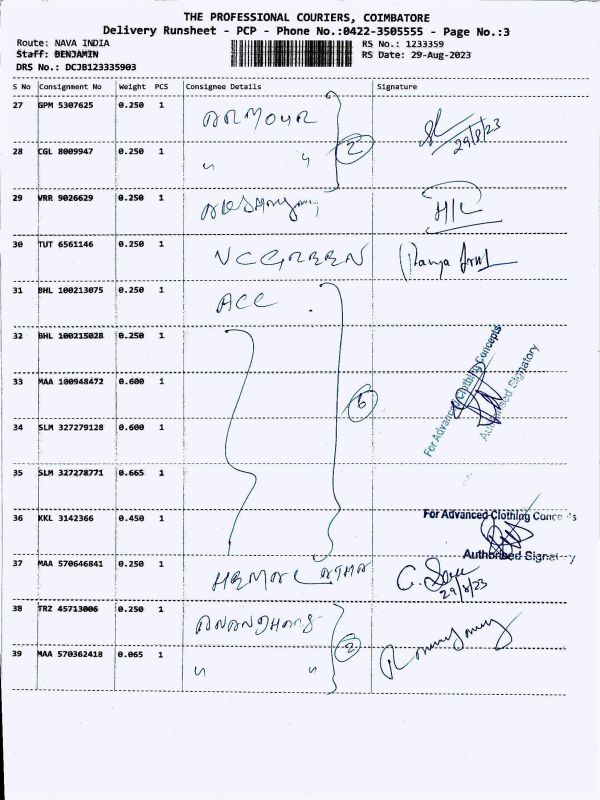 THE PROFESSIONAL COURIERS, COIMBATORE
Delivery Runsheet - PCP - Phone No.:0422-3505555 - Page No.:3
Route: NAVA INDIA
RS No.: 1233359
Staff: BENJAMIN
RS Date: 29-Aug-2023
DRS No.: DCJB123335903
S No Consignment No Weight PCS Consignee Details Signature
27 GPM 5307625 0.250 1 ARMOUR
29/8/23
28 CGL 8009947 0.250 1 " "
2
29 VRR 9026629 0.250 1 H/C
30 TUT 6561146 0.250 1 NCGREEN
31 BHL 100213075 0.250 1 ACC
32 BHL 100215028 0.250 1
33 MAA 100948472 0.600 1
6
For Advanced Clothing Concepts
Authorised Signatory
34 SLM 327279128 0.600 1
35 SLM 327278771 0.665 1
36 KKL 3142366 0.450 1
For Advanced Clothing Concepts
Authorised Signatory
37 MAA 570646841 0.250 1 HEMALATHA
29/8/23
38 TRZ 45713006 0.250 1
2
39 MAA 570362418 0.065 1 " "